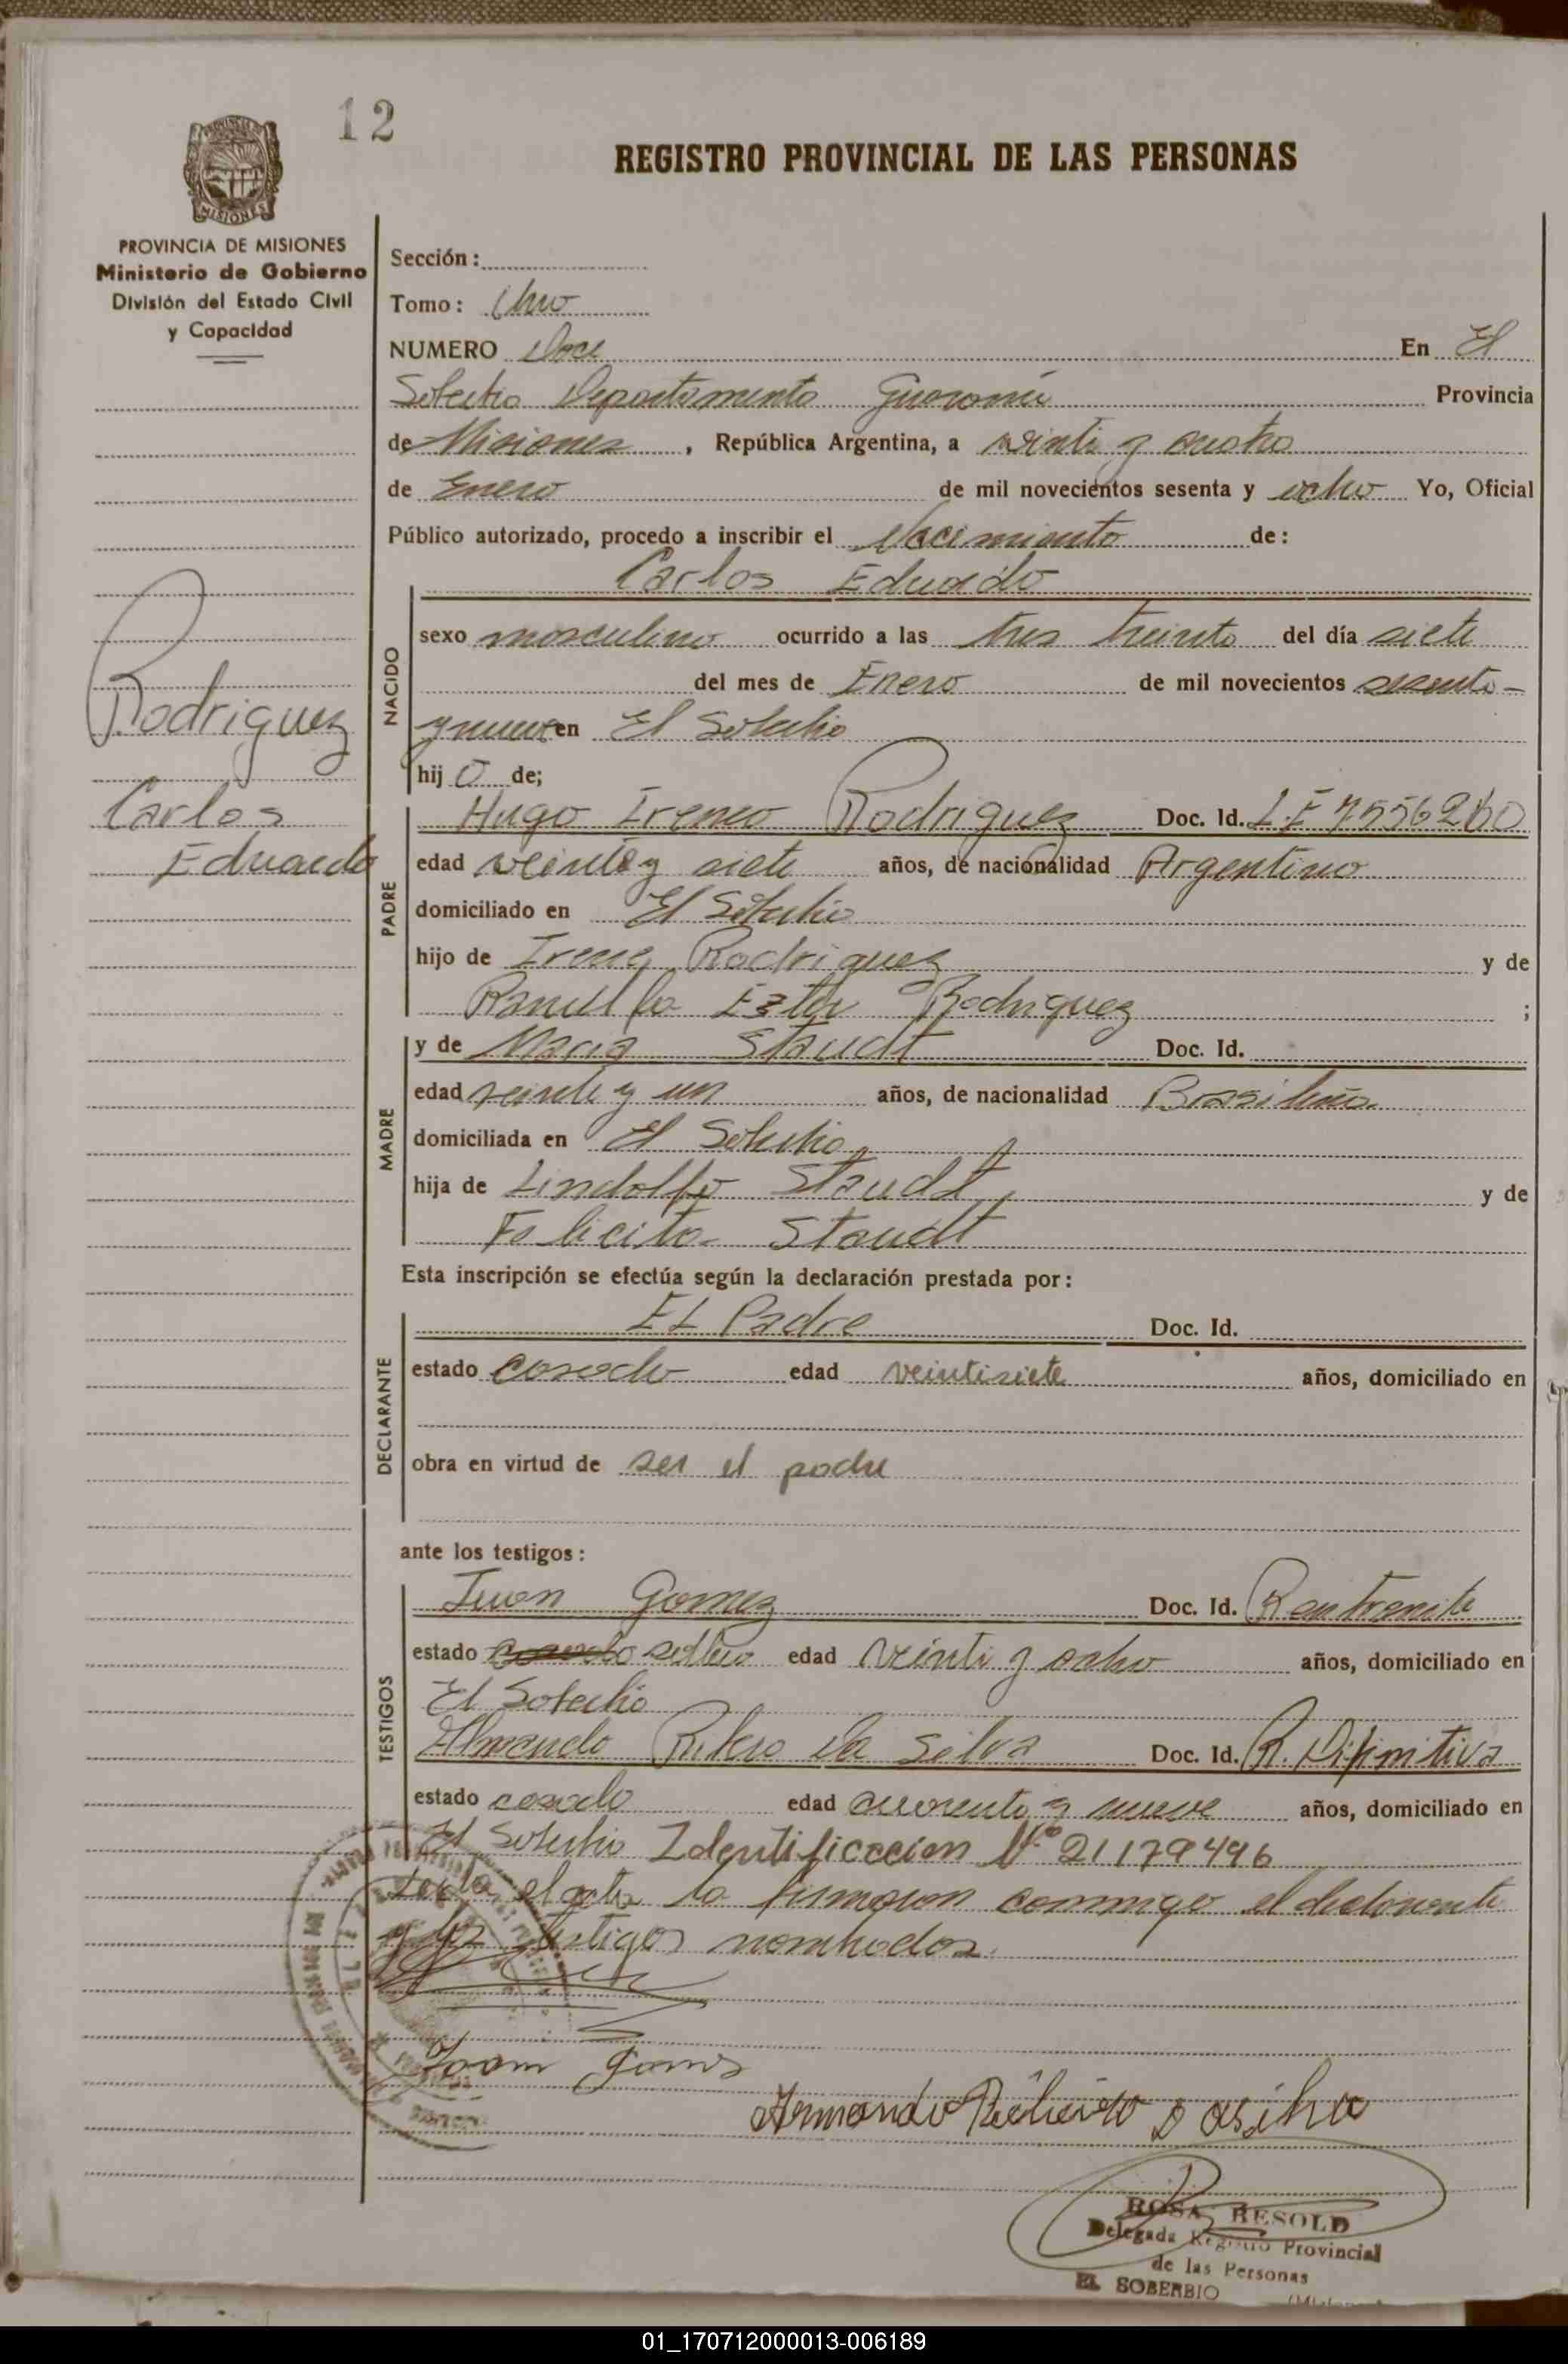 12
REGISTRO PROVINCIAL DE LAS PERSONAS
MISIONES
PROVINCIA DE MISIONES
Ministerio de Gobierno
División del Estado Civil
y Capacidad
Rodriguez
Carlos
Eduardo
Sección:
Tomo: Uno
NUMERO Doce En El
Soberbio Departamento Guarani Provincia
de Misiones, República Argentina, a veinti y cuatro
de Enero de mil novecientos sesenta y ocho Yo, Oficial
Público autorizado, procedo a inscribir el Nacimiento de:
Carlos Eduardo
NACIDO
sexo masculino ocurrido a las tres treinta del día siete
del mes de Enero de mil novecientos sesenta-
y nueve en El Soberbio
hij o de;
PADRE
Hugo Ireneo Rodriguez Doc. Id. L.E
edad veinte y siete años, de nacionalidad Argentino
domiciliado en El Soberbio
hijo de Rodriguez y de
Ester Rodriguez ;
MADRE
y de Maria Staudt Doc. Id.
edad veinte y un años, de nacionalidad Brasileña
domiciliada en El Soberbio
hija de Lindolfo Staudt y de
Felicita Staudt
Esta inscripción se efectúa según la declaración prestada por:
DECLARANTE
EL Padre Doc. Id.
estado casado edad veintisiete años, domiciliado en
obra en virtud de ser el padre
ante los testigos:
TESTIGOS
Juan Gomez Doc. Id.
estado soltero edad veinti y ocho años, domiciliado en
El Soberbio
Ribero da Silva Doc. Id. R. Difinitiva
estado casado edad cuarenta y nueve años, domiciliado en
El Soberbio Identificacion Nº 21179496
el acta la firmaron conmigo el declarante
y los testigos nombrados.
Armando Ribeiro dasilva
ROSA RESOLD
Delegada Registro Provincial
de las Personas
EL SOBERBIO
01_170712000013-006189